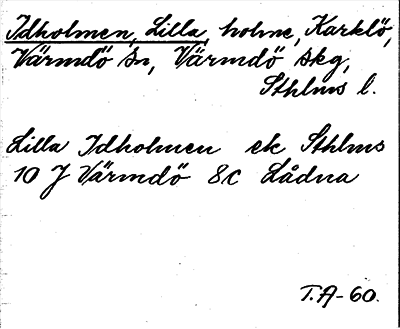 Idholmen, Lilla, holme, Karklö,
Värmdö sn, Värmdö skg,
Sthlms l.
Lilla Idholmen ek Sthlms
10 J Värmdö 8c Lådna
T.A-60.